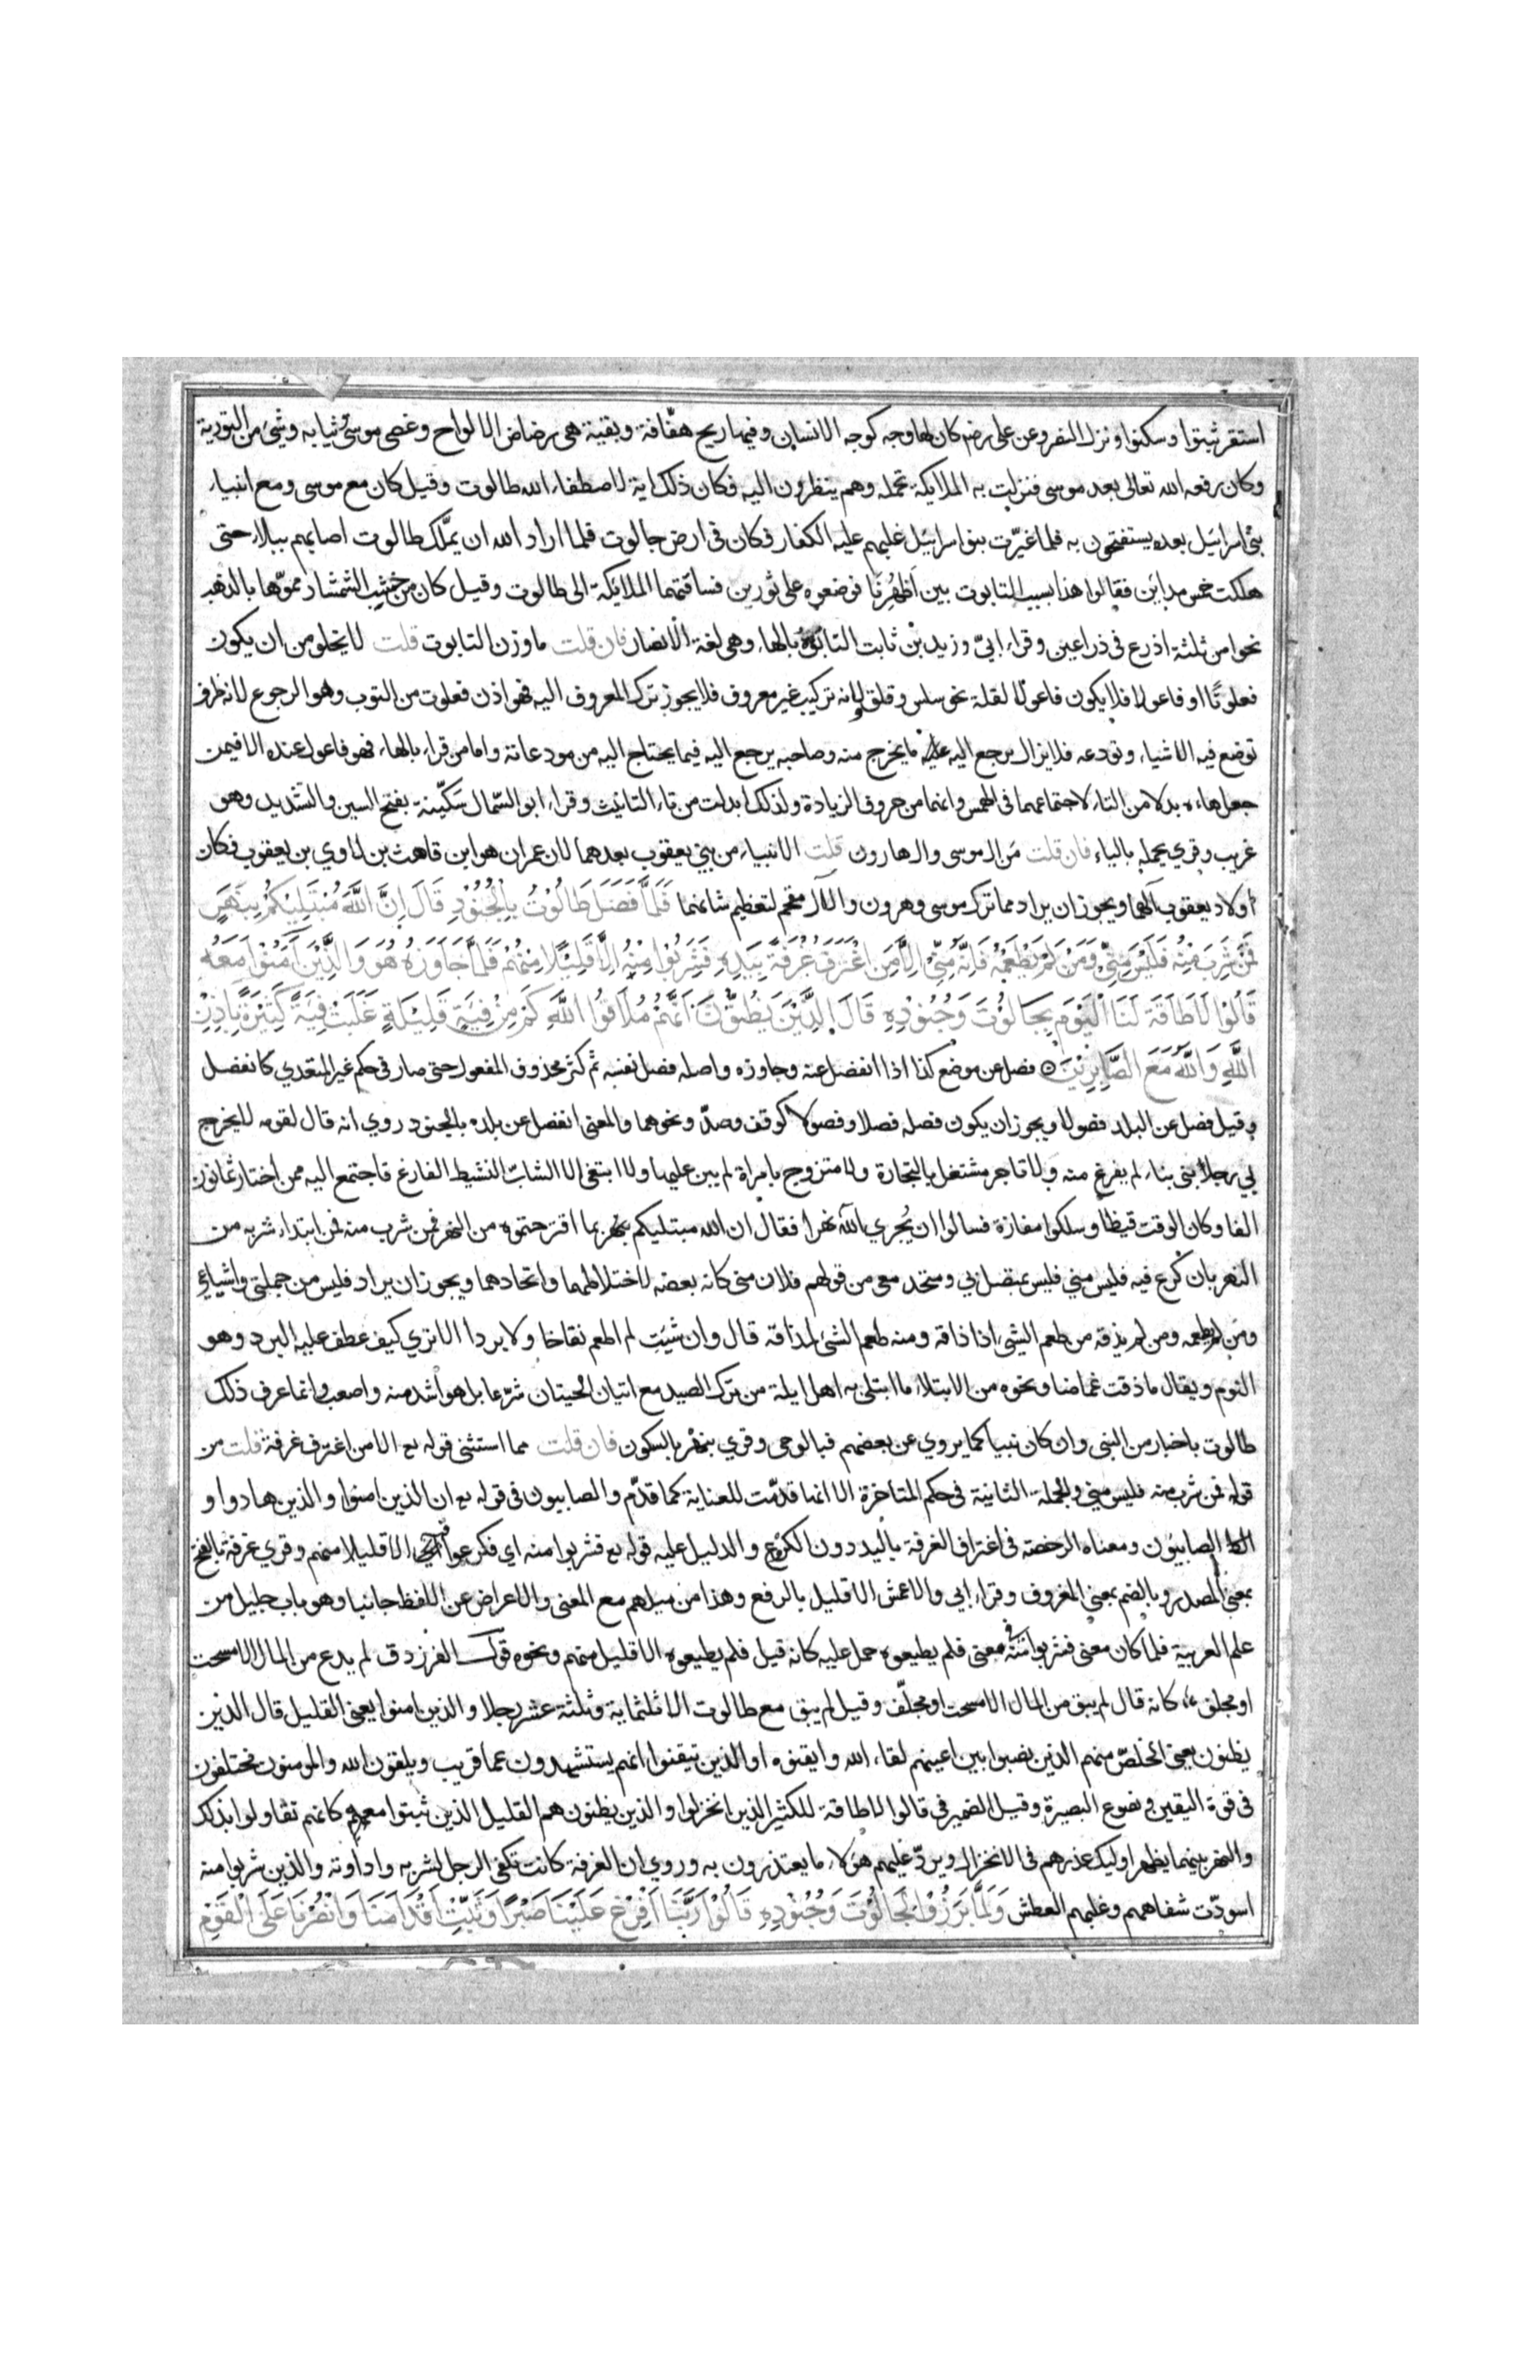 استقر ثبتوا وسكنوا ونزل النصر وعن علي رضه كان لها وجه كوجه الانسان وفيها ريح هفّافة وبقية هي رضاض الالواح وعصى موسى وثيابه وشئ من التورية
وكان رفعه الله تعالى بعد موسى فنزلت به الملايكة تحمله وهم ينظرون اليه فكان ذلك اية لاصطفاء الله طالوت وقيل كان مع موسى ومع انبياء
بني اسرائيل بعده يستفتحون به فلما غيّرت بنوا اسرائيل غلبهم عليه الكفار فكان في ارض جالوت فلما اراد الله ان يملّك طالوت اصابهم ببلاء حتى
هلكت خمس مداين فقالوا هذا بسبب التابوت بين اَظْهُرِنَا فوضعوه على ثورين فساقتهما الملائكة الى طالوت وقيل كان من خشب الشمشاد مموّها بالذهب
نحوا من ثلثة اذرع في ذراعين وقراء ابيّ وزيد بْن ثابت التابوه بالهاء وهي لغة الانصار فان قلت ما وزن التابوت قلت لا يخلو من ان يكون
فعلوتًا او فاعولا فلا يكون فاعولا لقلة نحو سلس وقلق ولانه تركيب غير معروف فلا يجوز ترك المعروف اليه فهو اذن فعلوت من التوب وهو الرجوع لانه ظرف
توضع فيه الاشياء وتودعه فلا يزال يرجع اليه ما يخرج منه وصاحبه يرجع اليه فيما يحتاج اليه من مودعاته واما من قراء بالهاء فهو فاعول عنده الا فيمن
جعل هاءه بدلا من التاء لاجتماعهما في الهمس وانهما من حروف الزيادة ولذلك ابدلت من تاء التانيث وقراء ابو السّمال سَكّينة بفتح السين والتشديد وهو
غريب وقري يحمله بالياء فان قلت مَن ال موسى وال هارون قلت الانبياء من بني يعقوب بعدهما لان عمران هو ابن قاهث بن لاوي بن يعقوب فكان
اولاد يعقوب آلهما ويجوز ان يراد مما ترك موسى وهرون والآل مقحم لتعظيم شانهما فَلَمَّا فَصَلَ طَالُوْتُ بِالْجُنُوْدِ قَالَ اِنَّ اللَّهَ مُبْتَلِيْكُمْ بِنَهَرٍ
فَمَنْ شَرِبَ مِنْهُ فَلَيْسَ مِنِّيْ وَمَنْ لَمْ يَطْعَمْهُ فَاِنَّهُ مِنِّيْ اِلَّا مَنِ اغْتَرَفَ غُرْفَةً بِيَدِهِ فَشَرِبُوْا مِنْهُ اِلَّا قَلِيْلًا مِنْهُمْ فَلَمَّا جَاوَزَهُ هُوَ وَالَّذِيْنَ آمَنُوْا مَعَهُ
قَالُوْا لَا طَاقَةَ لَنَا الْيَوْمَ بِجَالُوْتَ وَجُنُوْدِهِ قَالَ الَّذِيْنَ يَظُنُّوْنَ اَنَّهُمْ مُلَاقُوا اللَّهِ كَمْ مِنْ فِئَةٍ قَلِيْلَةٍ غَلَبَتْ فِئَةً كَثِيْرَةً بِاِذْنِ
اللَّهِ وَاللَّهُ مَعَ الصَّابِرِيْنَ فصل عن موضع كذا اذا انفصل عنه وجاوزه واصله فصل نفسه ثم كثر محذوف المفعول حتى صار في حكم غير المتعدي كانفصل
وقيل فصل عن البلد فصولا ويجوز ان يكون فصله فصلا وفصولا كوقف وصدّ ونحوهما والمعنى انفصل عن بلده بالجنود روي انه قال لقومه لا يخرج
لي رجل بنى بناء لم يفرغ منه ولا تاجر مشتغل بالتجارة ولا متزوج بامراة لم يبن عليها ولا ابتغى الا الشابّ النشيط الفارغ فاجتمع اليه ممن اختار ثمانون
الفا وكان الوقت قيظا وسلكوا مفازة فسالوا ان يُجري الله نهرا فقال ان الله مبتليكم بنهر بما اقترحتموه من النهر فمن شرب منه فمن ابتداء شربه من
النهر بان كرع فيه فليس مني فليس بمتصل بي ومتحد معي من قولهم فلان مني كانه بعضه لاختلاطهما واتحادهما ويجوز ان يراد فليس من جملتي واشياعي
ومَن لم يطعمه ومن لم يذقه من طعم الشئ اذا ذاقه ومنه طعم الشئ لمذاقه قال وان شئت لم اطعم نقاخا ولا بردا الا تري كيف عطف عليه البرد وهو
النوم ويقال ما ذقت غماضا ونحوه من الابتلاء ما ابتلي به اهل ايلة من ترك الصيد مع اتيان الحيتان شرّعا بل هو اشد منه واصعب وانما عرف ذلك
طالوت باخبار من النبي وان كان نبيا كما يروي عن بعضهم فبالوحي وقري بنهْر بالسكون فان قلت مما استثنى قوله تع الا من اغترف غرفة قلت من
قوله فمن شرب منه فليس مني والجملة الثانية في حكم المتاخرة الا انها قدّمت للعناية كما قدّم والصابيون في قوله تع ان الذين امنوا والذين هادوا و
الصابيون ومعناه الرخصة في اغتراف الغرفة باليد دون الكرع والدليل عليه قوله تع فشربوا منه اي فكرعوا فيه الا قليلا منهم وقري غرفة بالفتح
بمعنى المصدر وبالضم بمعنى المغروف وقراء ابي والاعمش الا قليل بالرفع وهذا من ميلهم مع المعنى والاعراض عن اللفظ جانبا وهو باب جليل من
علم العربية فلما كان معنى فشربوا منه في معنى فلم يطيعوه حمل عليه كانه قيل فلم يطيعوه الا قليل منهم ونحوه قول الفرزدق لم يدع من المال الا مسحت
او مجلف كانه قال لم يبق من المال الا مسحت او مجلّف وقيل لم يبق مع طالوت الا ثلثماية وثلثة عشر رجلا والذين امنوا يعني القليل قال الذين
يظنون يعني الخلّص منهم الذين نصبوا بين اعينهم لقاء الله وايقنوه او الذين تيقنوا انهم يستشهدون عما قريب ويلقون الله والمومنون مختلفون
في قوة اليقين ونصوع البصيرة وقيل الضمير في قالوا لا طاقة للكثير الذين انخزلوا والذين يظنون هم القليل الذين ثبتوا معه كانهم تقاولوا بذلك
والنهر بينهما يظهر اوليك عذرهم في الانخزال ويردّ عليهم هؤلاء ما يعتذرون به وروي ان الغرفة كانت تكفي الرجل لشربه واداوته والذين شربوا منه
اسودّت شفاههم وغلبهم العطش وَلَمَّا بَرَزُوْا لِجَالُوْتَ وَجُنُوْدِهِ قَالُوْا رَبَّنَا اَفْرِغْ عَلَيْنَا صَبْرًا وَثَبِّتْ اَقْدَامَنَا وَانْصُرْنَا عَلَى الْقَوْمِ